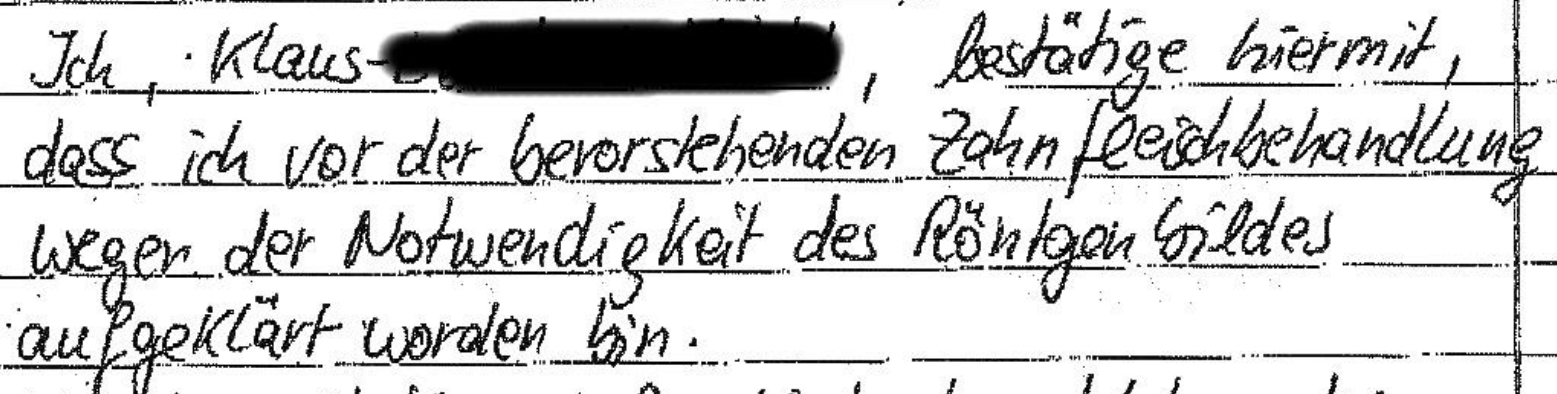 Ich, Klaus- , bestätige hiermit,
dass ich vor der bevorstehenden Zahnfleischbehandlung
wegen der Notwendigkeit des Röntgenbildes
aufgeklärt worden bin.